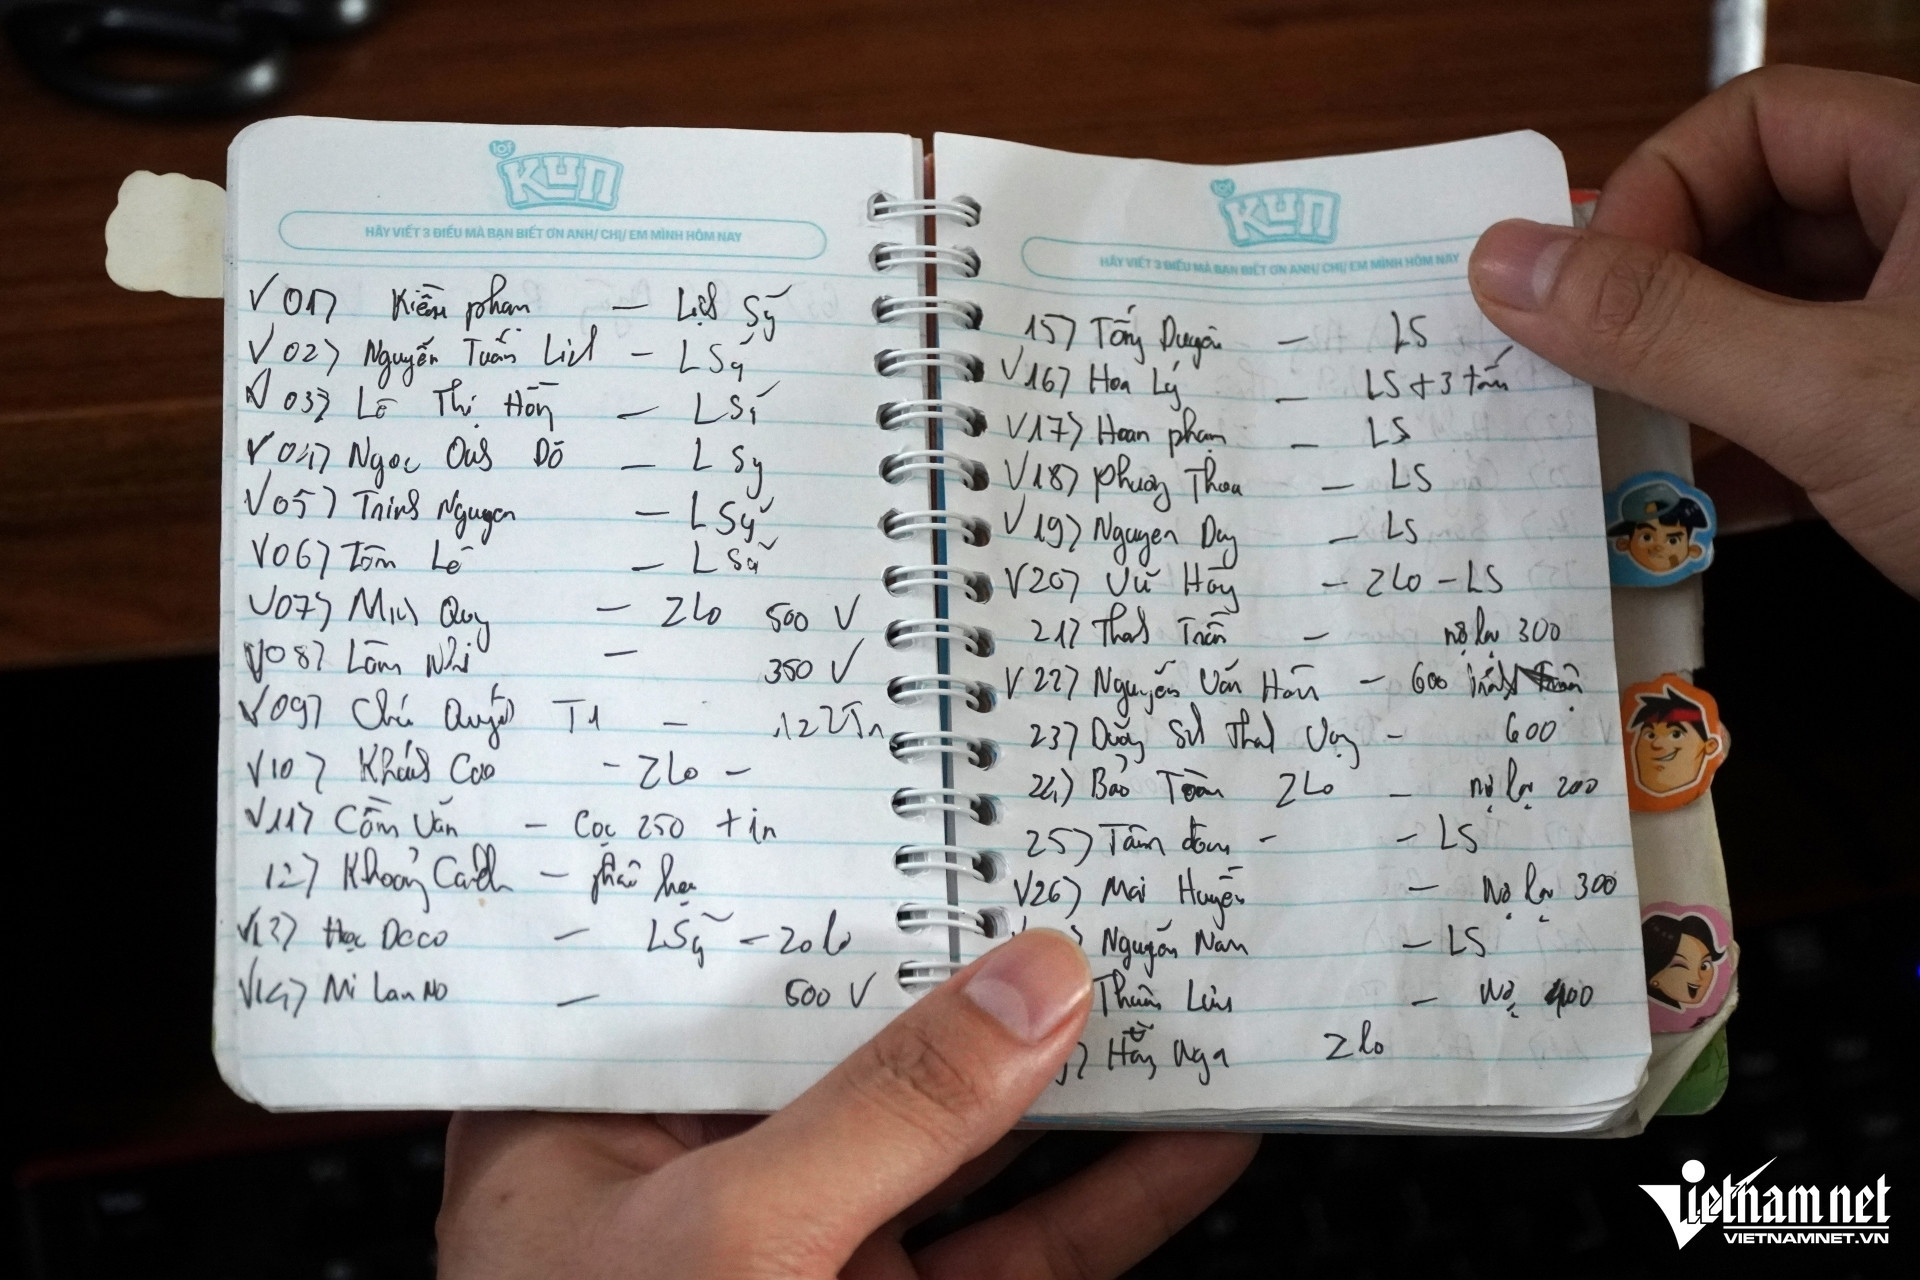 lof KUN
HÃY VIẾT 3 ĐIỀU MÀ BẠN BIẾT ƠN ANH/ CHỊ/ EM MÌNH HÔM NAY
V 01) Kiều phạm — Lịch Sỹ
V 02) Nguyễn Tuấn Lịch — L Sỹ
V 03) Lê Thị Hồng — L Sĩ
V 04) Ngọc Đỗ — L Sỹ
V 05) Trinh Nguyen — L Sỹ
V 06) Lê — L Sỹ
V 07) Minh Quy — Zlo 500 V
V 08) Lâm Nhi — 350 V
V 09) Chú T1 —
V 10) Khánh Cao - Zlo -
V 11) Cẩm Vân - Cọc 250 + in
12) Khoảng Cách -
V 13) Học — LSỹ -
V 14) Mi Lan No — 500 V
lof KUN
HÃY VIẾT 3 ĐIỀU MÀ BẠN BIẾT ƠN ANH/ CHỊ/ EM MÌNH HÔM NAY
15) Tống Duyên — LS
V 16) Hoa Lý — LS + 3 tấm
V 17) Hoan phạm — LS
V 18) Phương Thoa — LS
V 19) Nguyen Duy — LS
V 20) Vũ Hồng - Zlo - LS
21) Thanh Trần — nợ lại 300
V 22) Nguyễn Văn Hân - 600
23) Thanh - 600
24) Bảo Toàn Zlo - nợ lại 200
25) Tâm - - LS
V 26) Mai Huyền — Nợ lại 300
Nguyễn Nam — LS
Thuần — Nợ 400
Hằng Nga Zlo
Vietnamnet
VIETNAMNET.VN